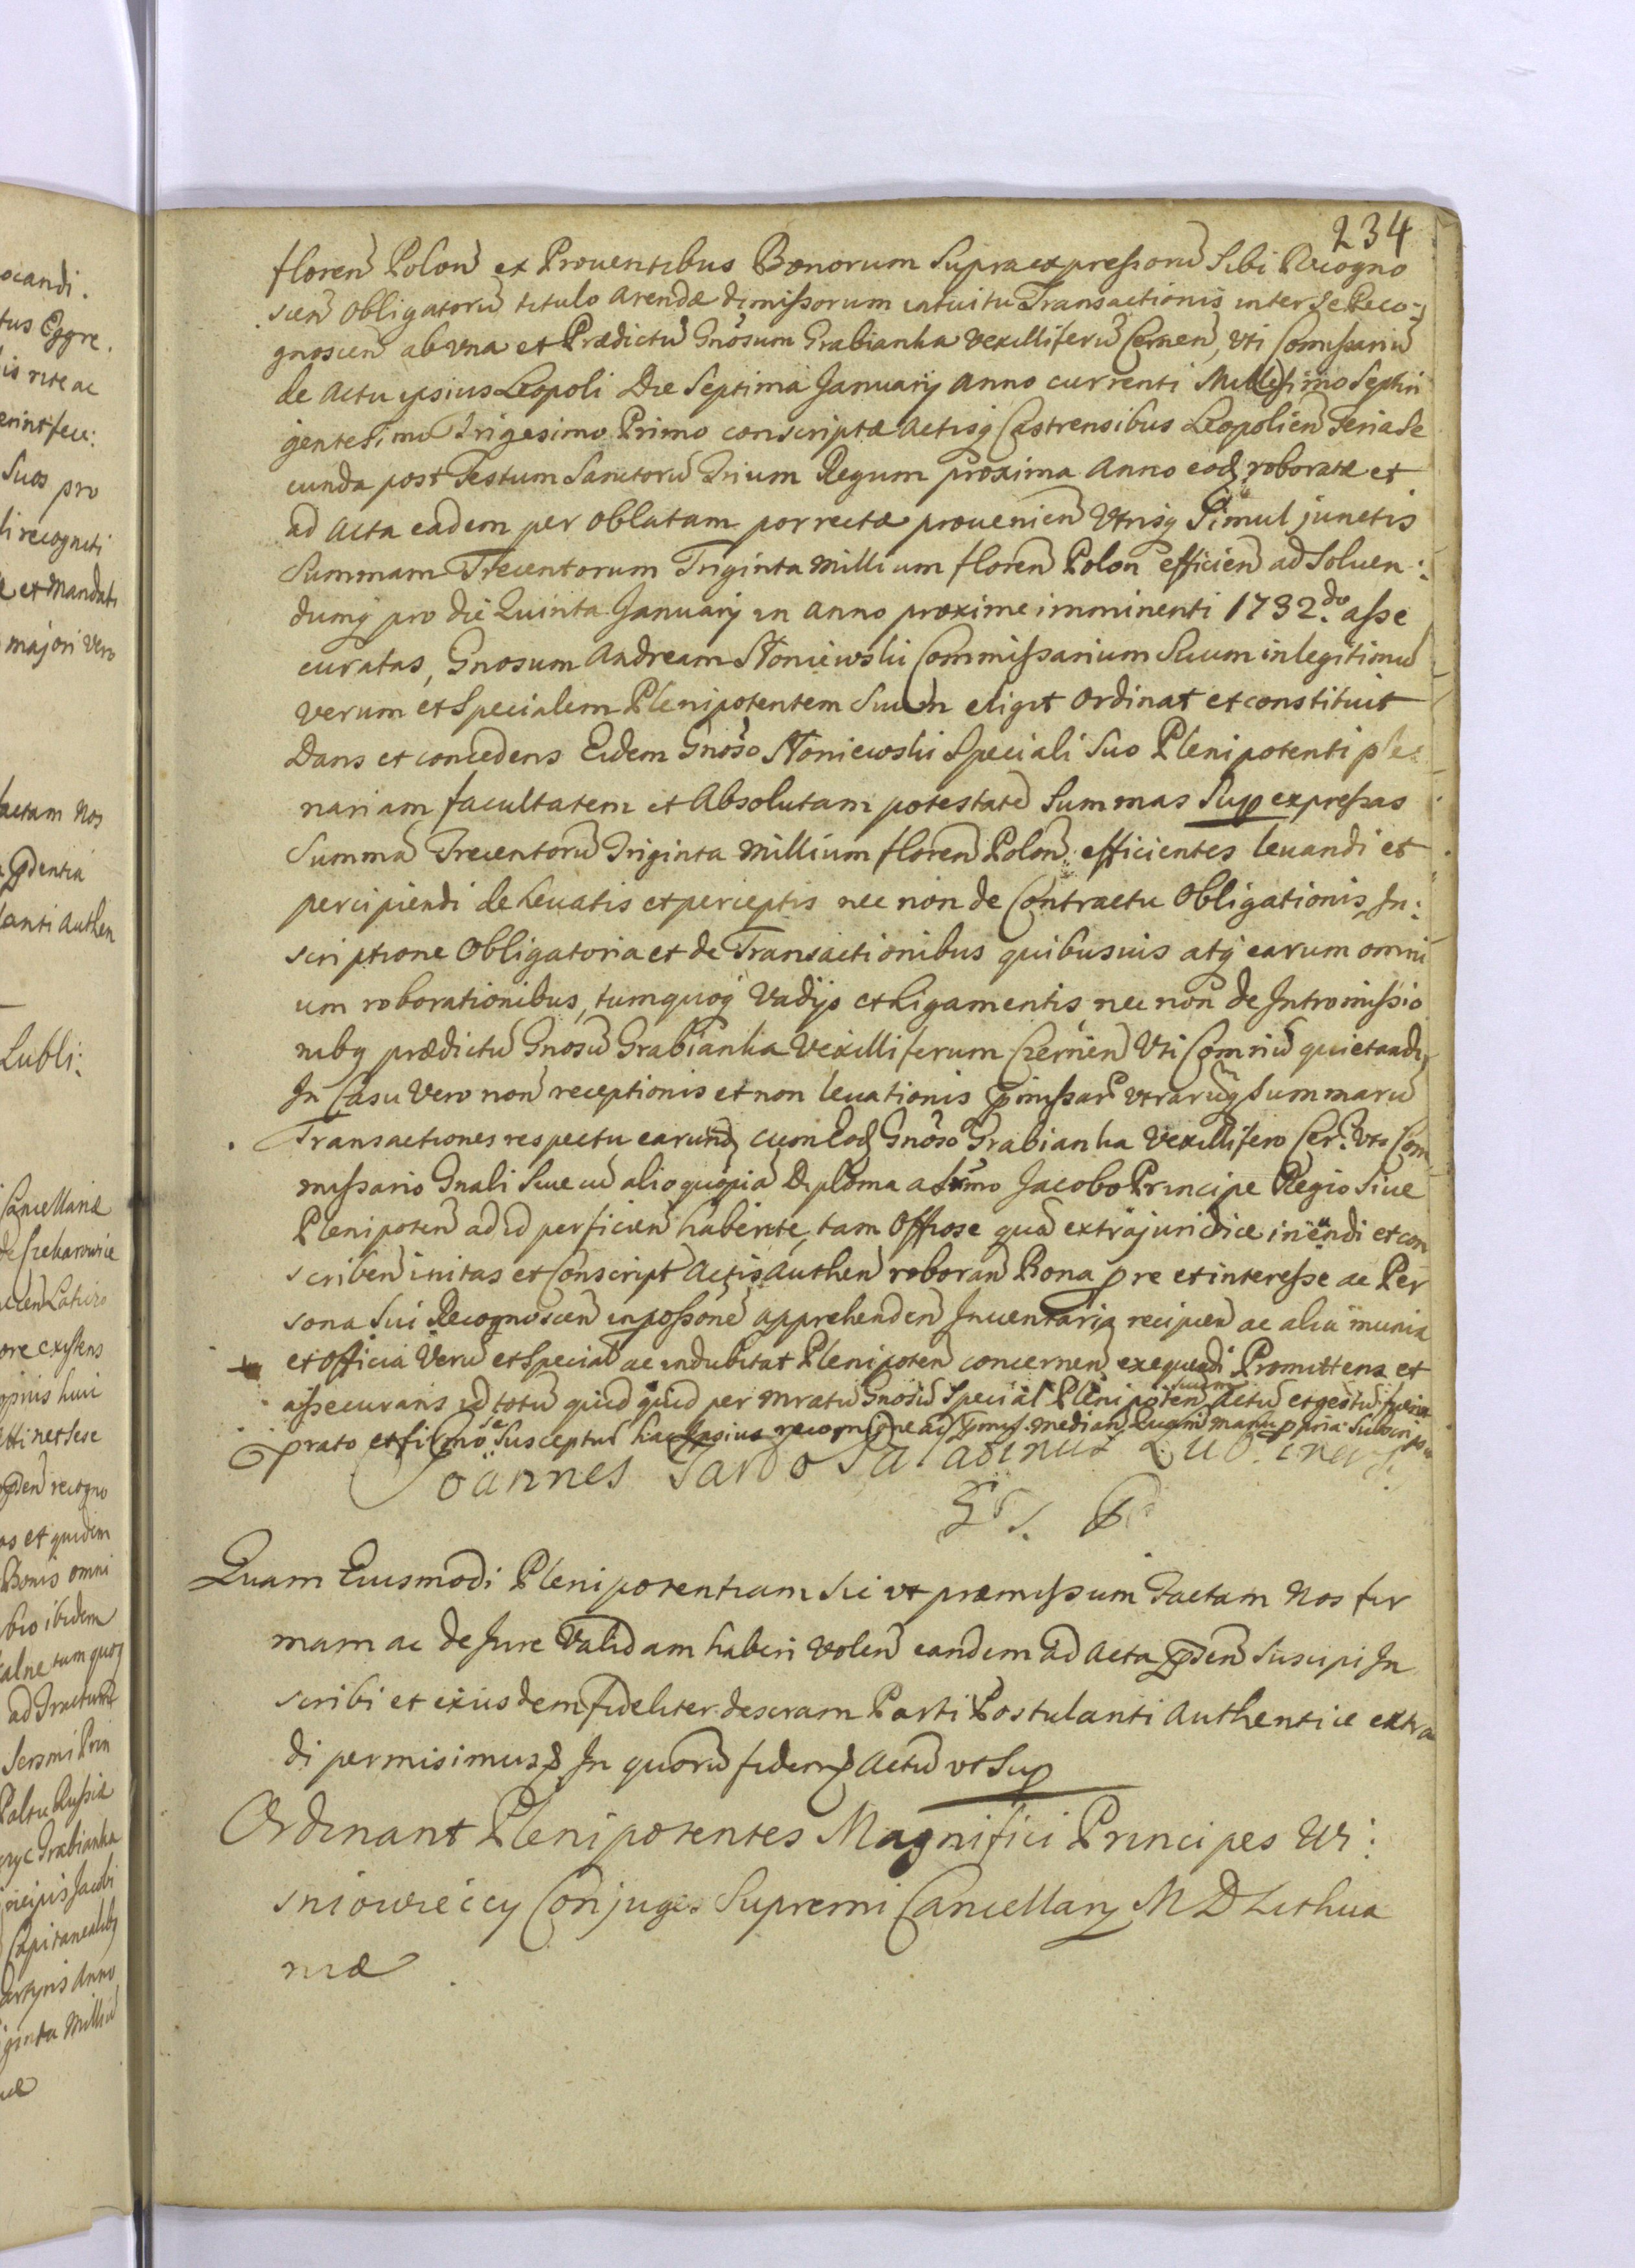 234
floren Polon ex Prouentibus Bonorum Supraexpressorū Sibi Recogno
scen Obligatorū titulo arendæ dimissorum intuitu Transactionis inter Se Reco-
gnoscen ab vna et Prædictū Gnosum Grabianka Vexilliferū Cernen, Vti Comissariū
de Actu ipsius Leopoli Die Septima January Anno currenti Millesimo Septin
gentesimo Trigesimo Primo conscriptæ Actisq Castrensibus Leopolien Feria Se
cunda post Festum Sanctorū Trium Regum proxima Anno eod roboratæ et
ad Acta eadem per Oblatam porrectæ prouenien Vtrisq Simul junctis
Summam Trecentorum Triginta Millium floren Polon efficien ad Soluen:
dumq pro die Quinta January in Anno proxime imminenti 1732do asse
curatas, Gnosum Andream Stoniewski Commissarium Suum in legitimū
verum et Specialem Plenipotentem Suum eligit Ordinat et constituit
Dans et concedens Eidem Gnoso Stoniewski Speciali Suo Plenipotenti ple
nariam facultatem et Absolutam potestatē Summas Sup expressas
Summā Trecentorū Triginta Millium floren Polon efficientes leuandi et
percipiendi de leuatis et perceptis nec non de Contractu Obligationis In:
scriptione Obligatoria et de Transactionibus quibusuis atq earum omni
um roborationibus, tumquoq Vadijs et Ligamentis nec non de Intromissio
nibq prædictū Gnosū Grabianka Vexilliferum Czernen Vti Comriū quietandi,
In Casu Vero non receptionis et non leuationis pmissar vtrarūq Summarū
Transactiones respectu earund cum Eod Gnoso Grabianka Vexillifero Cer. Vto Com
missario Gnali Siue cū alio quopiā Diploma a Smo Jacobo Principe Regio Siue
Plenipoten ad id perficien habente, tam Offiose quā extrajuridice ineundi et con
scriben initas et Conscript Actis Authen roboran Bona pre et interesse ac Per
sona Sui Recognoscen in possone apprehenden Inuentaria recipien ac alia munia
et Officia Verū et Special ac indubitat Plenipoten concernen exequendi Promittens et
assecurans id totū quid quid per mratū Gnosū Special Plenipoten Suum Actū et gestū fuerit
prato et firmo Se Susceptur hac Ipsius recognitione ad pmis. median. Quam manu ppria Subscripsit
Joannes Tarło Palatinus Lublinensis
Quam Eiusmodi Plenipotentiam Sic vt præmissum factam Nos fir
mam ac de Jure Validam haberi Volen eandem ad Acta pden Suscipi In
scribi et eiusdem fideliter descram Parti Postulanti Authentice extra
di permisimus In quorū fidem Actū vt Sup
Ordinant Plenipotentes Magnifici Principes Wi:
sniowieccy Conjuges Supremi Cancellary M D Lithua
niæ